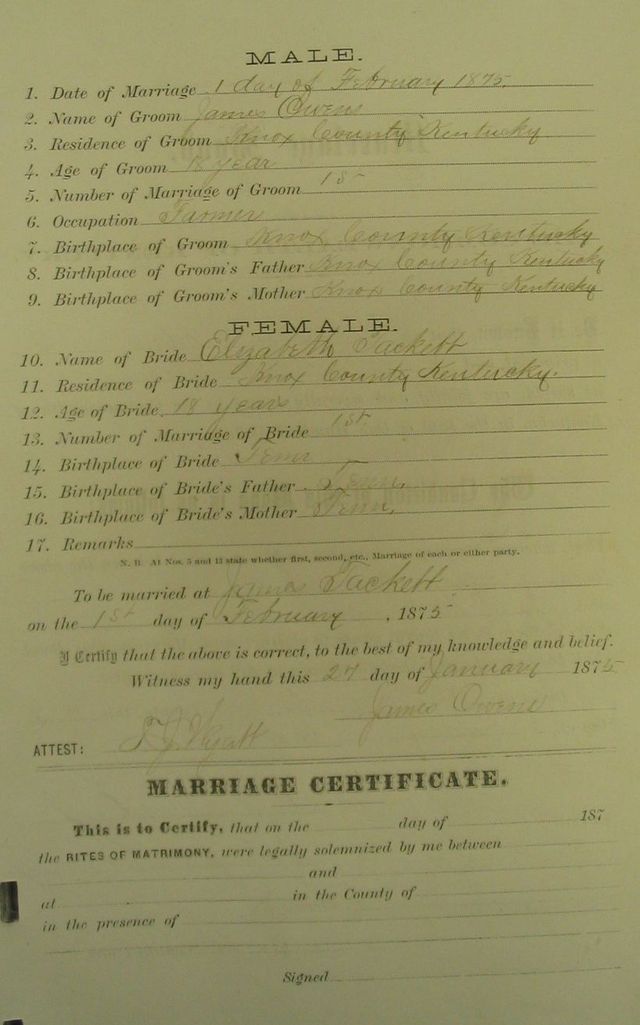 MALE.
1. Date of Marriage 1 day of February 1875.
2. Name of Groom James Owens
3. Residence of Groom Knox County Kentucky
4. Age of Groom 18 year
5. Number of Marriage of Groom 1st
6. Occupation Farmer
7. Birthplace of Groom Knox County Kentucky
8. Birthplace of Groom's Father Knox County Kentucky
9. Birthplace of Groom's Mother Knox County Kentucky
FEMALE.
10. Name of Bride Elizabeth Tackett
11. Residence of Bride Knox County Kentucky.
12. Age of Bride 18 years
13. Number of Marriage of Bride 1st
14. Birthplace of Bride Tenn
15. Birthplace of Bride's Father Tenn.
16. Birthplace of Bride's Mother Tenn.
17. Remarks
N. B. At Nos. 5 and 13 state whether first, second, etc., Marriage of each or either party.
To be married at James Tackett
on the 1st day of February, 1875
I Certify that the above is correct, to the best of my knowledge and belief.
Witness my hand this 27 day of January 1875
James Owens
ATTEST: Wyatt
MARRIAGE CERTIFICATE.
This is to Certify, that on the day of 187
the RITES OF MATRIMONY, were legally solemnized by me between
and
at in the County of
in the presence of
Signed